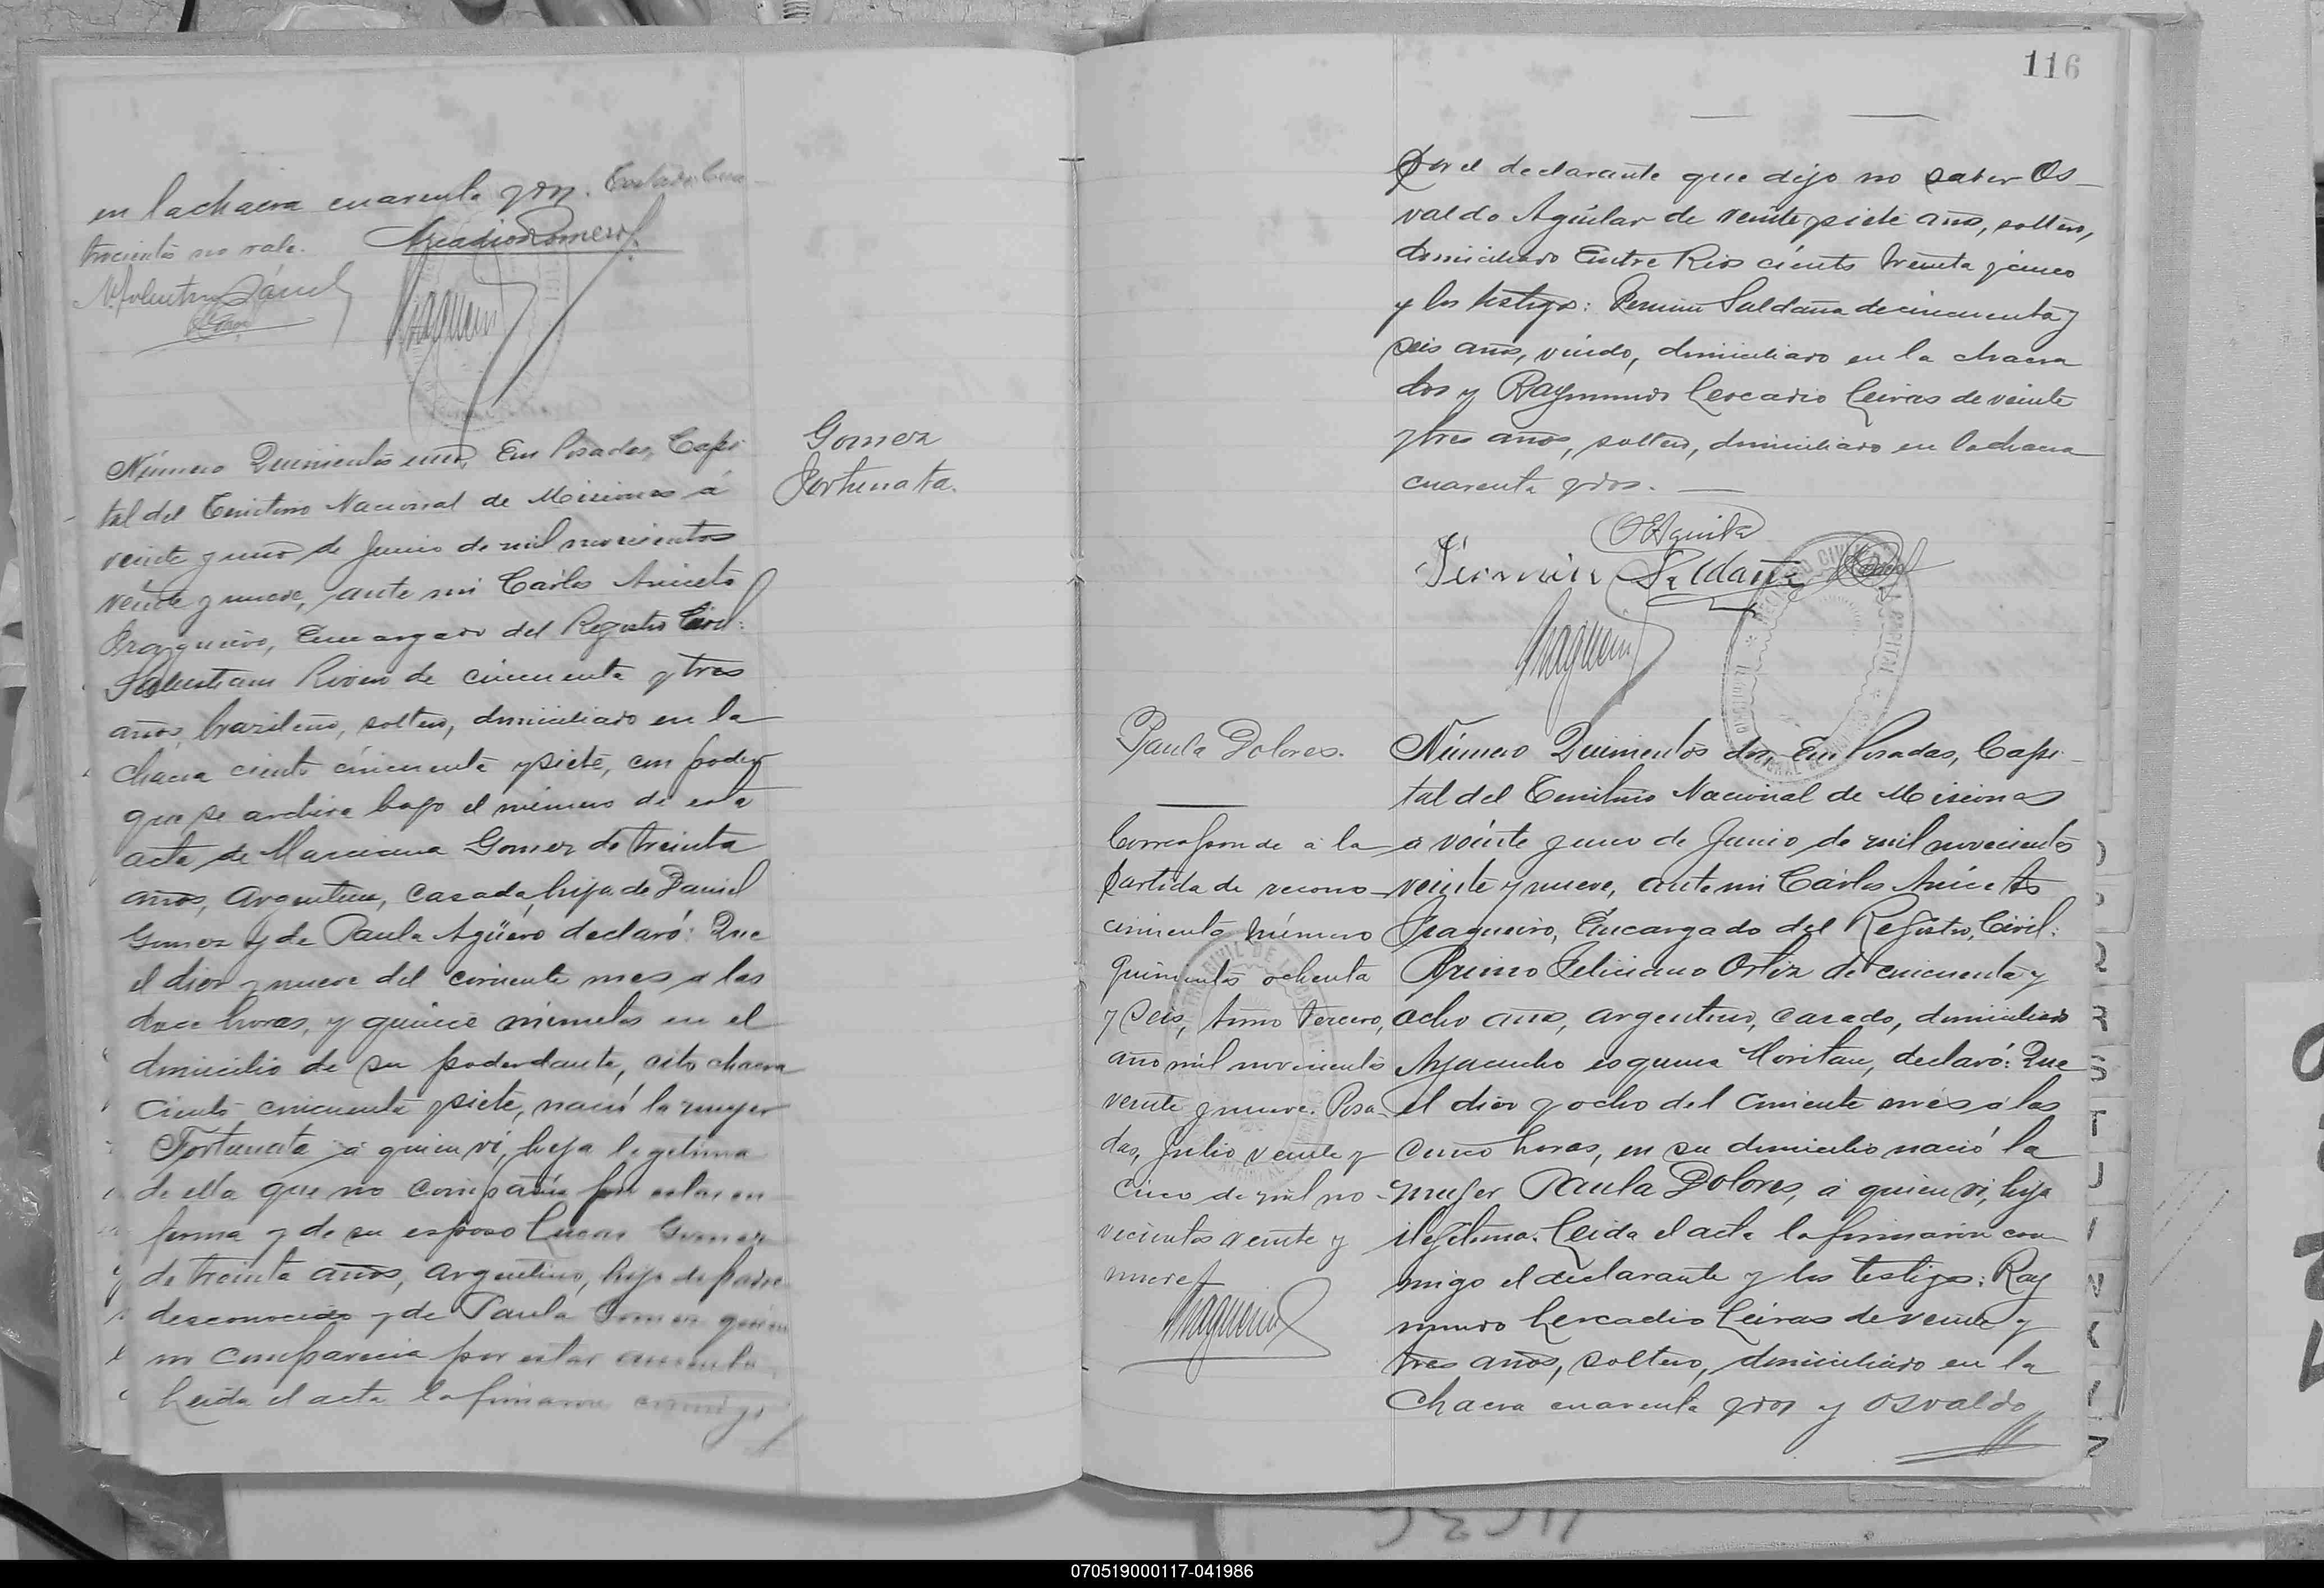 en la chacra cuarenta y dos. Testado: Cua-
trocientos no vale. Arcadio Romero
Fragueiro
Número Quinientos uno, En Posadas, Capi
tal del Territorio Nacional de Misiones á
veinte y uno de Junio de mil novecientos
veinte y nueve, ante mi Carlos Aniceto
Fragueiro, Encargado del Registro Civil:
Salustiano Rivero de cincuenta y tres
años, brazileño, soltero, domiciliado en la
chacra ciento cincuenta y siete, con poder
que se archiva bajo el número de esta
acta de Marciana Gomez de treinta
años, argentina, casada, hija de Daniel
Gomez y de Paula Agüero declaró: Que
el diez y nueve del corriente mes a las
doce horas, y quince minutos en el
domicilio de su poderdante, sito chacra
ciento cincuenta y siete, nació la mujer
Fortunata á quien vi, hija legitima
de ella que no compareció por estar en
ferma y de su esposo Lucas Gomez
de treinta años, argentino, hijo de padre
desconocido y de Paula Gomez quien
no comparecia por estar ausente.
Leida el acta la firmaron conmigo
Gomez
Fortunata.
116
Por el declarante que dijo no saber Os-
valdo Aguilar de veinte y siete años, soltero,
domiciliado Entre Rios ciento treinta y cinco
y los testigos: Fermin Saldaña de cincuenta y
seis años, viudo, domiciliado en la chacra
dos y Raymundo Leocadio Leiras de veinte
y tres años, soltero, domiciliado en la chacra
cuarenta y dos.
O Aguilar
Fermin Saldaña
Fragueiro
Paula Dolores.
Corresponde a la
partida de recono-
cimiento número
quinientos ochenta
y seis, tomo tercero,
año mil novecientos
veinte y nueve. Posa-
das, Julio veinte y
cinco de mil no-
vecientos veinte y
nueve
Fragueiro
Número Quinientos dos, En Posadas, Capi-
tal del Territorio Nacional de Misiones
a veinte y uno de Junio de mil novecientos
veinte y nueve, ante mi Carlos Aniceto
Fragueiro, Encargado del Registro Civil:
Feliciano Ortiz de cincuenta y
ocho años, argentino, casado, domiciliado
Ayacucho esquina Moritan, declaró: Que
el diez y ocho del corriente mes a las
cinco horas, en su domicilio nació la
mujer Paula Dolores, á quien vi, hija
ilegitima. Leida el acta la firmaron con-
migo el declarante y los testigos: Ray
mundo Leocadio Leiras de veinte y
tres años, soltero, domiciliado en la
chacra cuarenta y dos y Osvaldo
070519000117-041986